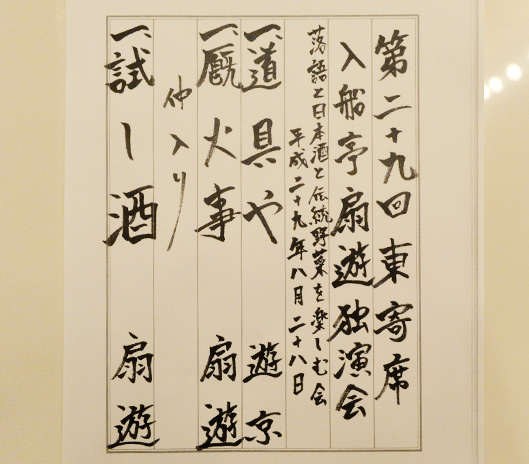 第二十九回東寄席
入船亭扇遊独演会
落語と日本酒と伝統野菜を楽しむ会
平成二十九年八月二十八日
一、道具や 遊京
一、厩火事 扇遊
仲入り
一、試し酒 扇遊